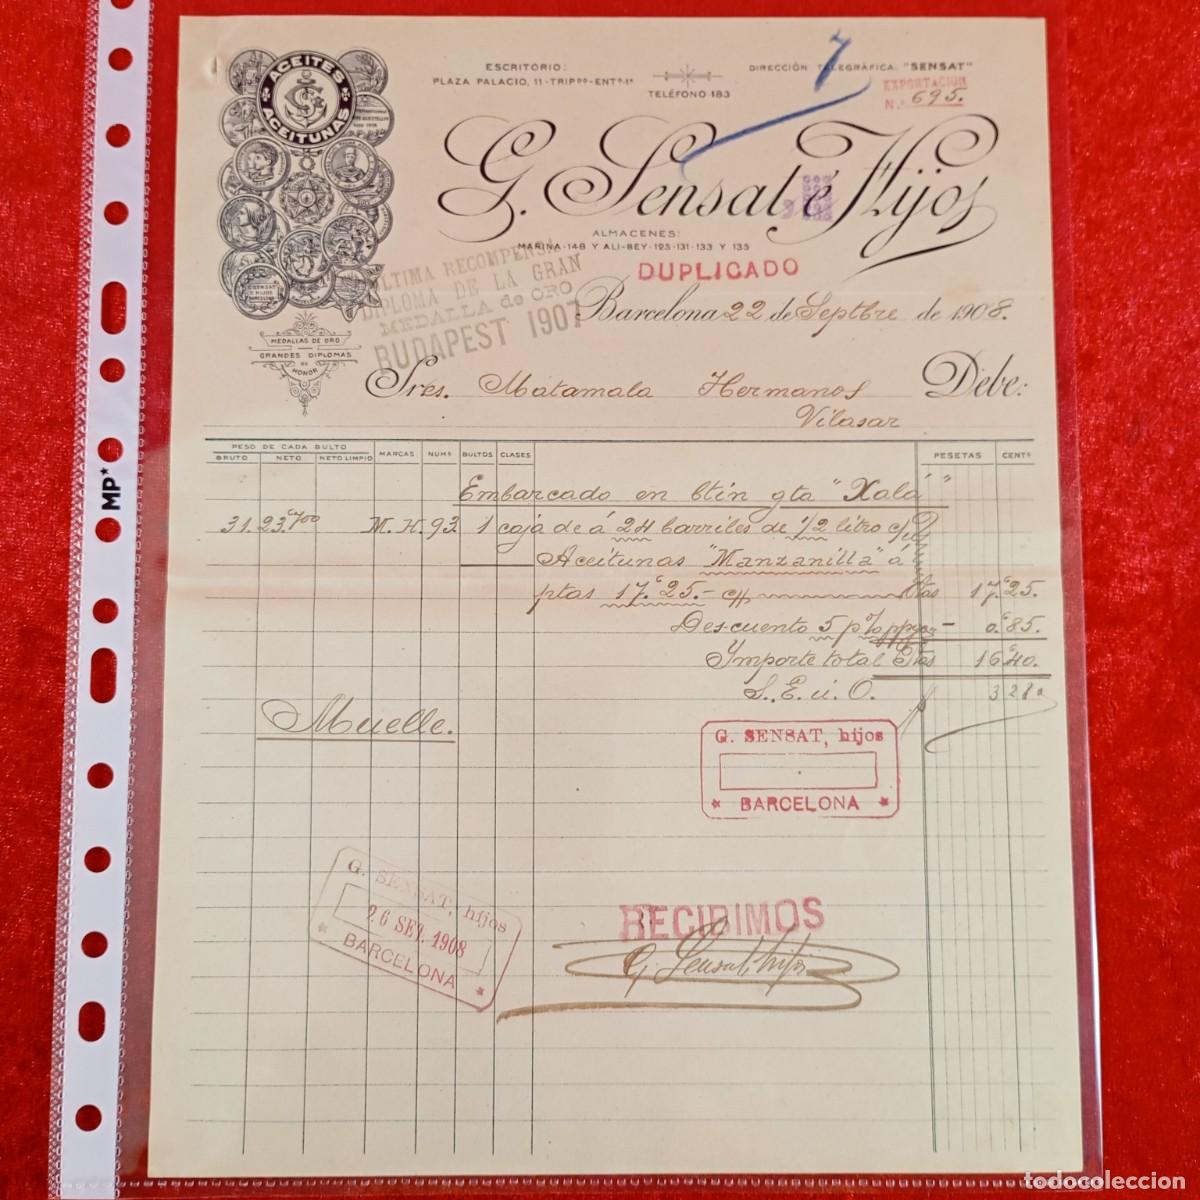 ACEITES
ACEITUNAS
ESCRITORIO:
PLAZA PALACIO, 11-TRIPº-ENTº-1ª
TELÉFONO-183
DIRECCIÓN TELEGRÁFICA: "SENSAT"
7
EXPORTACION
N.º 695.
G. Sensat é Hijos
ALMACENES:
MARINA-148 Y ALI-BEY-125-131-133 Y 135
DUPLICADO
ULTIMA RECOMPENSA
DIPLOMA DE LA GRAN
MEDALLA de ORO
BUDAPEST 1907
Barcelona 22 de Septbre de 1908.
MEDALLAS DE ORO
GRANDES DIPLOMAS
DE
HONOR
Sres. Matamala Hermanos Debe:
Vilasar
PESO DE CADA BULTO
BRUTO NETO NETO LIMPIO MARCAS NUMS BULTOS CLASES PESETAS CENTS
Embarcado en btin gta "Xala"
31. 23.700 M.H. 93. 1 caja de á 24 barriles de 1/2 litro
Aceitunas "Manzanilla" á
ptas 17.25.- Ptas 17.25.
Descuento 5 p% - 0.85.
Importe total Ptas 16.40.
S. E. ú O. 328
Muelle.
G. SENSAT, hijos
BARCELONA
G. SENSAT, hijos
26 SET. 1908
BARCELONA
RECIBIMOS
G. Sensat, hijos
MP*
todocoleccion